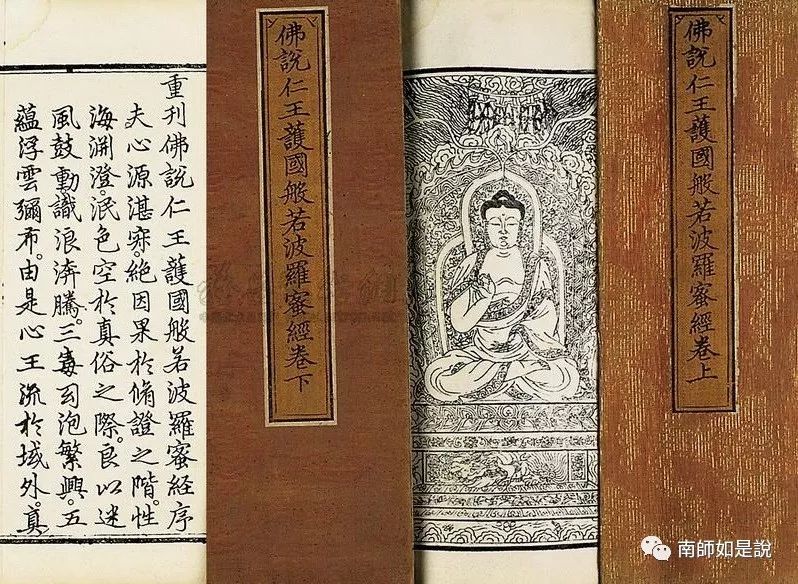 佛說仁王護國般若波羅蜜經卷上
佛說仁王護國般若波羅蜜經卷下
重刊佛說仁王護國般若波羅蜜經序
夫心源湛寂。絕因果於脩證之階。性
海淵澄。泯色空於真俗之際。良以迷
風鼓動。識浪奔騰。三毒泡繁興。五
蘊浮雲彌布。由是心王流於域外。真
南師如是說